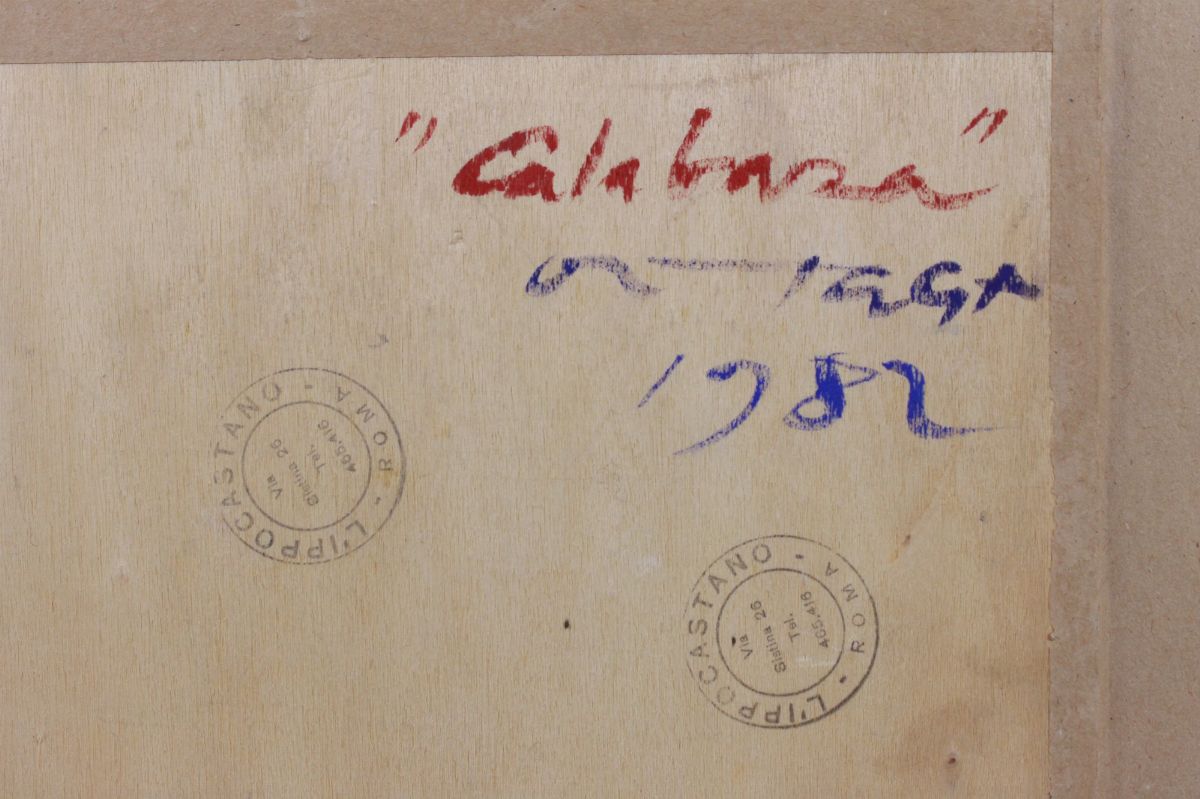 "Calabaza"
1982
L'IPPOCASTANO - ROMA -
Via
Sistina 26
Tel.
465.416
L'IPPOCASTANO - ROMA -
Via
Sistina 26
Tel.
465.416